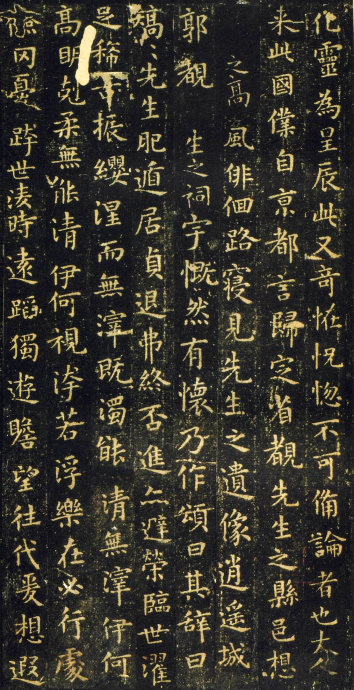 化靈為星辰此又奇恠怳惚不可俻論者也大人
来此國僕自京都言歸定省覩先生之縣邑想
之高風俳佪路寢見先生之遺像逍遥城
郭觀生之祠宇慨然有懷乃作頌曰其辞曰
矯〻先生肥遁居貞退弗終否進亦避榮臨世濯
足稀振纓涅而無滓既濁能清無滓伊何
高明剋柔無能清伊何視洿若浮樂在必行處
險罔憂跨世凌時遠蹈獨遊瞻望往代爰想遐